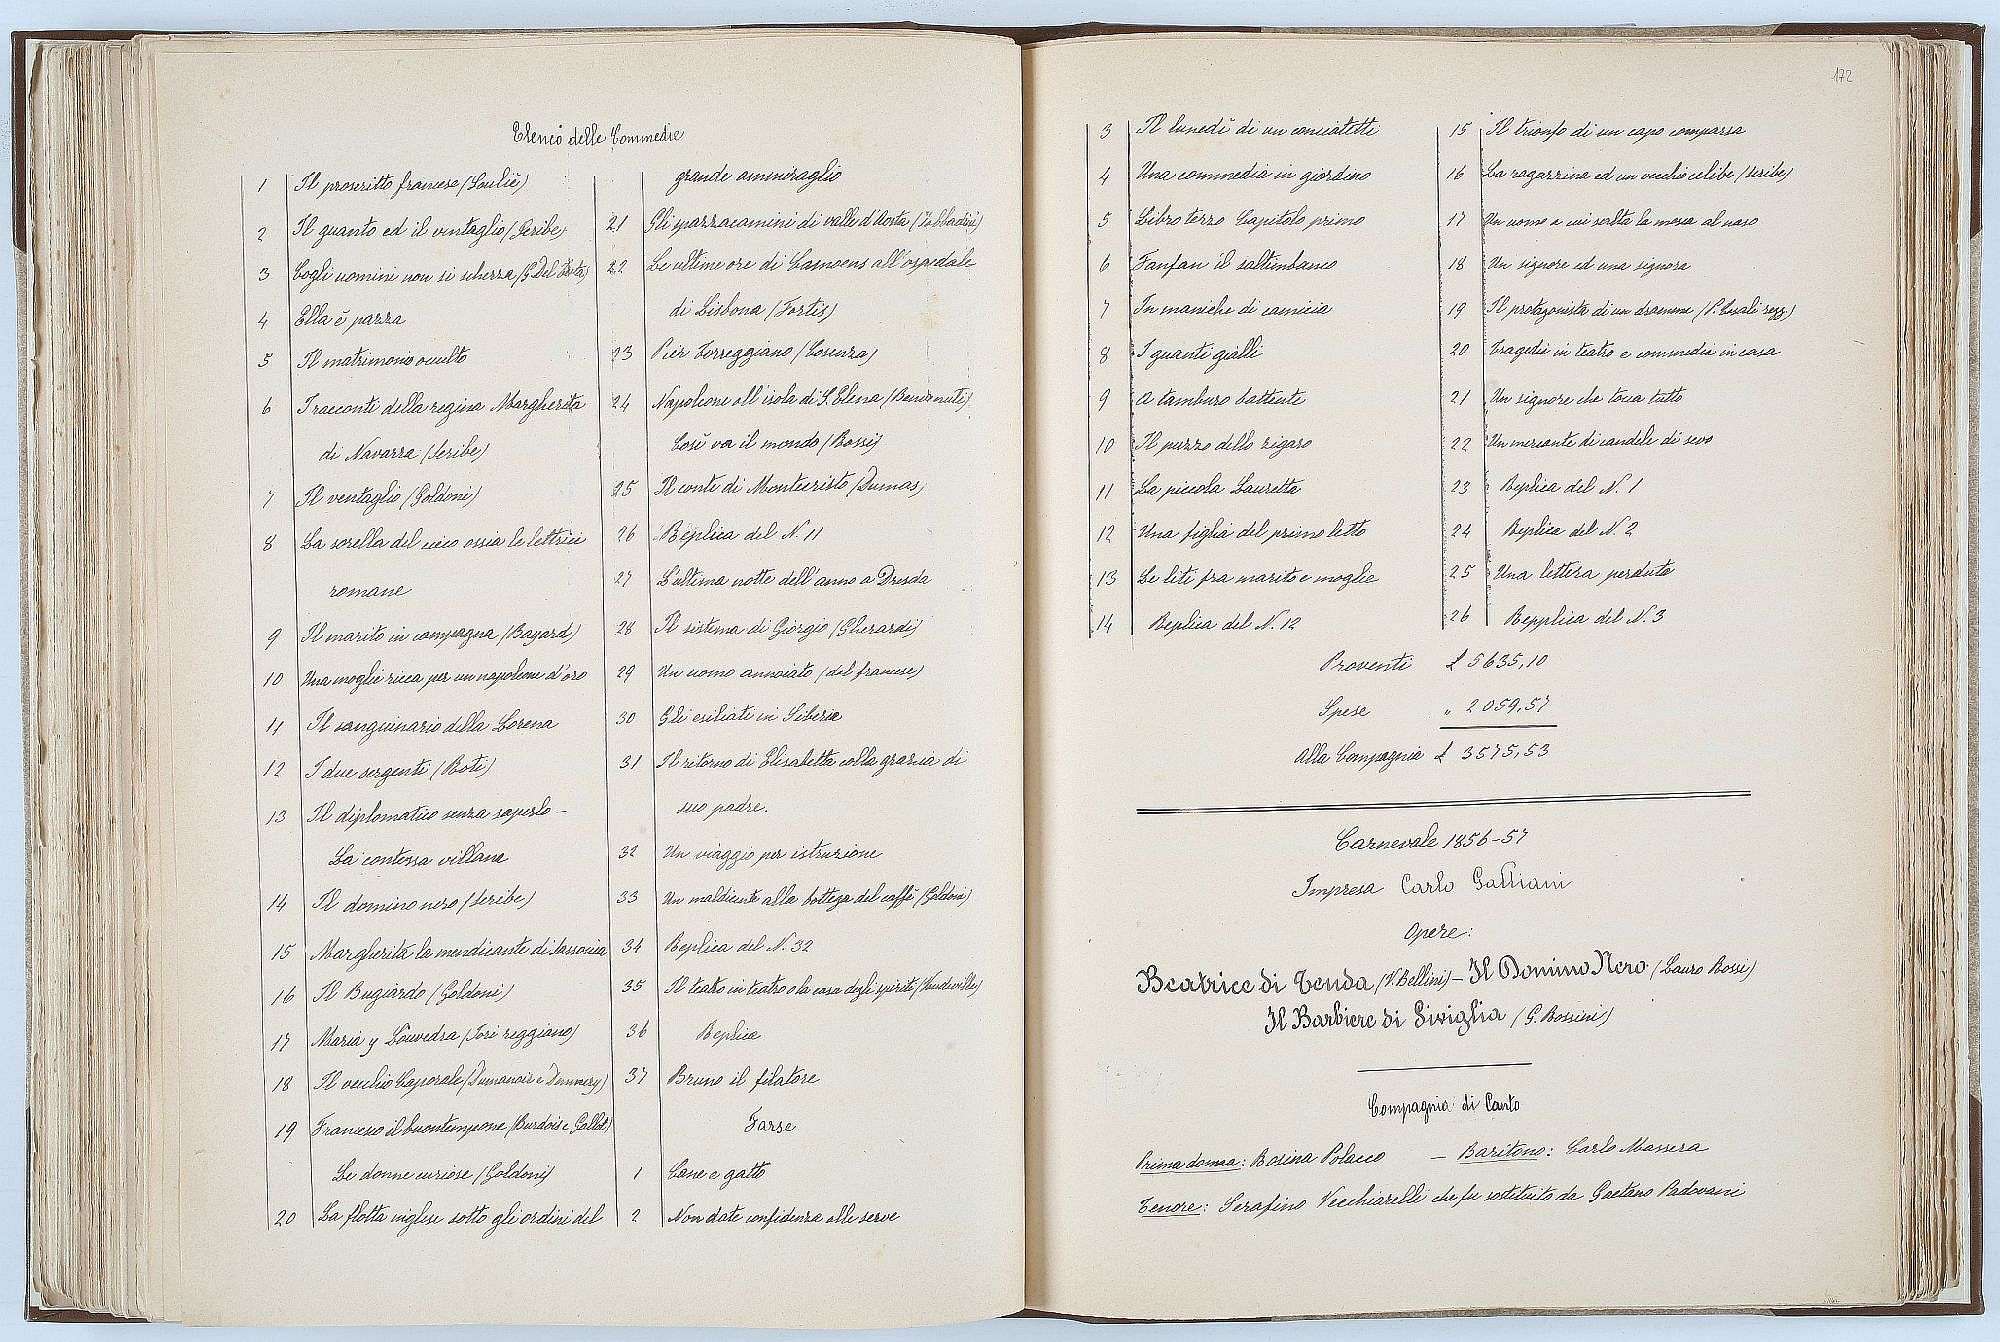 Elenco delle Commedie
1 Il proscritto francese (Soulié)
2 Il guanto ed il ventaglio (Scribe)
3 Cogli uomini non si scherza (G. Del Testa)
4 Ella è pazza
5 Il matrimonio occulto
6 I racconti della regina Margherita
di Navarra (Scribe)
7 Il ventaglio (Goldoni)
8 La sorella del cieco ossia le lettrici
romane
9 Il marito in campagna (Bayard)
10 Una moglie ricca per un napoleone d'oro
11 Il sanguinario della Lorena
12 I due sergenti (Roti)
13 Il diplomatico senza saperlo -
La contessa villana
14 Il domino nero (Scribe)
15 Margherita la mendicante di Sassonia
16 Il Bugiardo (Goldoni)
17 Maria y Louvedra (Jori reggiano)
18 Il vecchio Caporale (Dumanoir e Dennery)
19 Francesco il buontempone (Burdois e Gallet)
Le donne curiose (Goldoni)
20 La flotta inglese sotto gli ordini del
grande ammiraglio
21 Gli spazzacamini di valle d'Aosta (Sabbadini)
22 Le ultime ore di Camoens all'ospedale
di Lisbona (Fortis)
23 Pier Torreggiano (Cosenza)
24 Napoleone all'isola di S. Elena (Benvenuti)
Così va il mondo (Bossi)
25 Il conte di Montecristo (Dumas)
26 Replica del N. 11
27 L'ultima notte dell'anno a Dresda
28 Il sistema di Giorgio (Gherardi)
29 Un uomo annoiato (dal francese)
30 Gli esiliati in Siberia
31 Il ritorno di Elisabetta colla grazia di
suo padre.
32 Un viaggio per istruzione
33 Un maldicente alla bottega del caffè (Goldoni)
34 Replica del N. 32
35 Il teatro in teatro o la casa degli spiriti (Vaudeville)
36 Replica
37 Bruno il filatore
Farse
1 Cane e gatto
2 Non date confidenza alle serve
172
3 Il lunedì di un conciatetti
4 Una commedia in giardino
5 Libro terzo Capitolo primo
6 Fanfan il saltimbanco
7 In maniche di camicia
8 I guanti gialli
9 A tamburo battente
10 Il puzzo dello zigaro
11 La piccola Lauretta
12 Una figlia del primo letto
13 Le liti fra marito e moglie
14 Replica del N. 12
15 Il trionfo di un capo comparsa
16 La ragazzina ed un vecchio celibe (Scribe)
17 Un uomo a cui salta la mosca al naso
18 Un signore ed una signora
19 Il protagonista di un dramma (P. Casali regg.)
20 Tragedie in teatro e commedie in casa
21 Un signore che tocca tutto
22 Un mercante di candele di sevo
23 Replica del N. 1
24 Replica del N. 2
25 Una lettera perduta
26 Repplica del N. 3
Proventi £ 5635,10
Spese " 2059,57
Alla Compagnia £ 3575,53
Carnevale 1856-57
Impresa Carlo Galliani
Opere:
Beatrice di Tenda (V. Bellini) - Il Domino Nero (Lauro Rossi)
Il Barbiere di Siviglia (G. Rossini)
Compagnia di Canto
Prima donna: Rosina Polacco - Baritono: Carlo Massera
Tenore: Serafino Vecchiarelli che fu sostituito da Gaetano Padovani